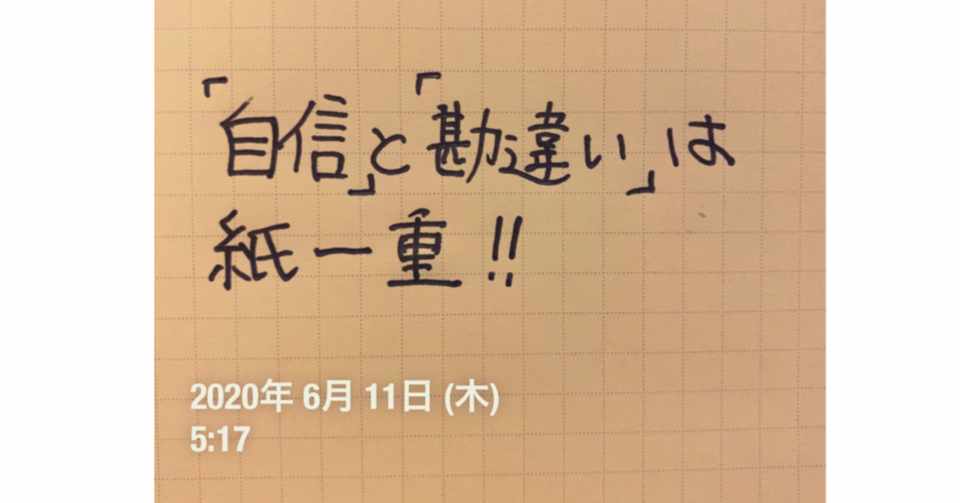 「自信」と「勘違い」は
紙一重!!
2020年 6月 11日 (木)
5:17